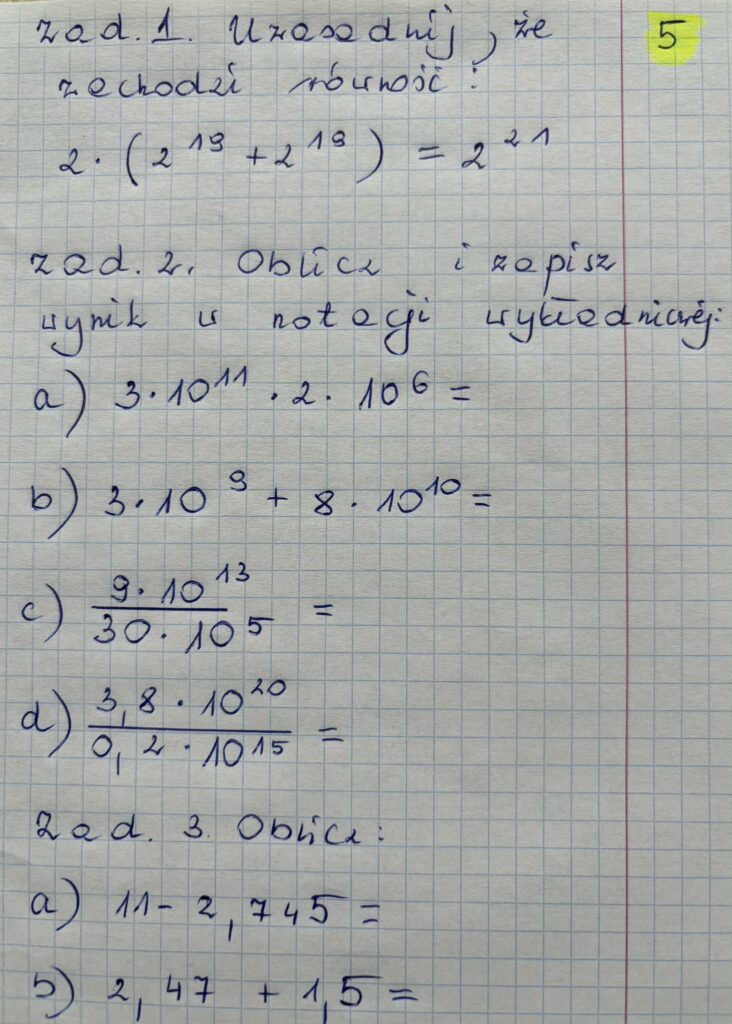 zad. 1. Uzasadnij, że 5
zachodzi równość:
2 · (2^19 + 2^19) = 2^21
zad. 2. Oblicz i zapisz
wynik w notacji wykładniczej:
a) 3 · 10^11 · 2 · 10^6 =
b) 3 · 10^9 + 8 · 10^10 =
c) 9 · 10^13
30 · 10^5 =
d) 3,8 · 10^20
0,2 · 10^15 =
Zad. 3. Oblicz:
a) 11 - 2,745 =
b) 2,47 + 1,5 =